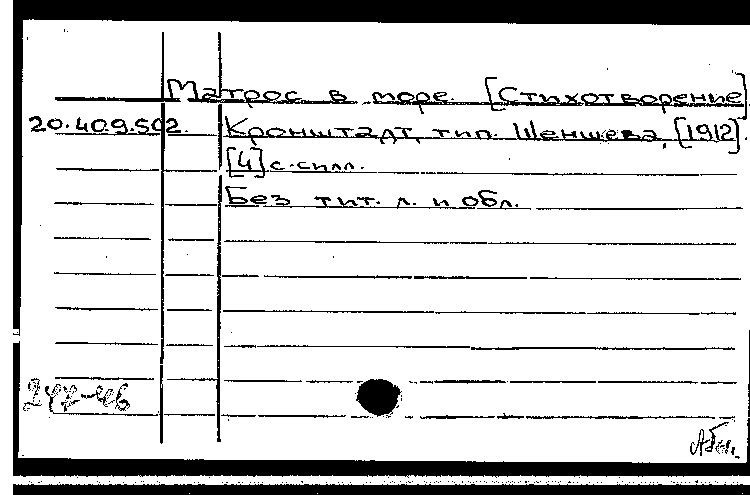 Матрос в море. [Стихотворение].
20.40.9.502. Кронштадт, тип. Шеншева, [1912].
[4] с. с илл.
Без тит. л. и обл.